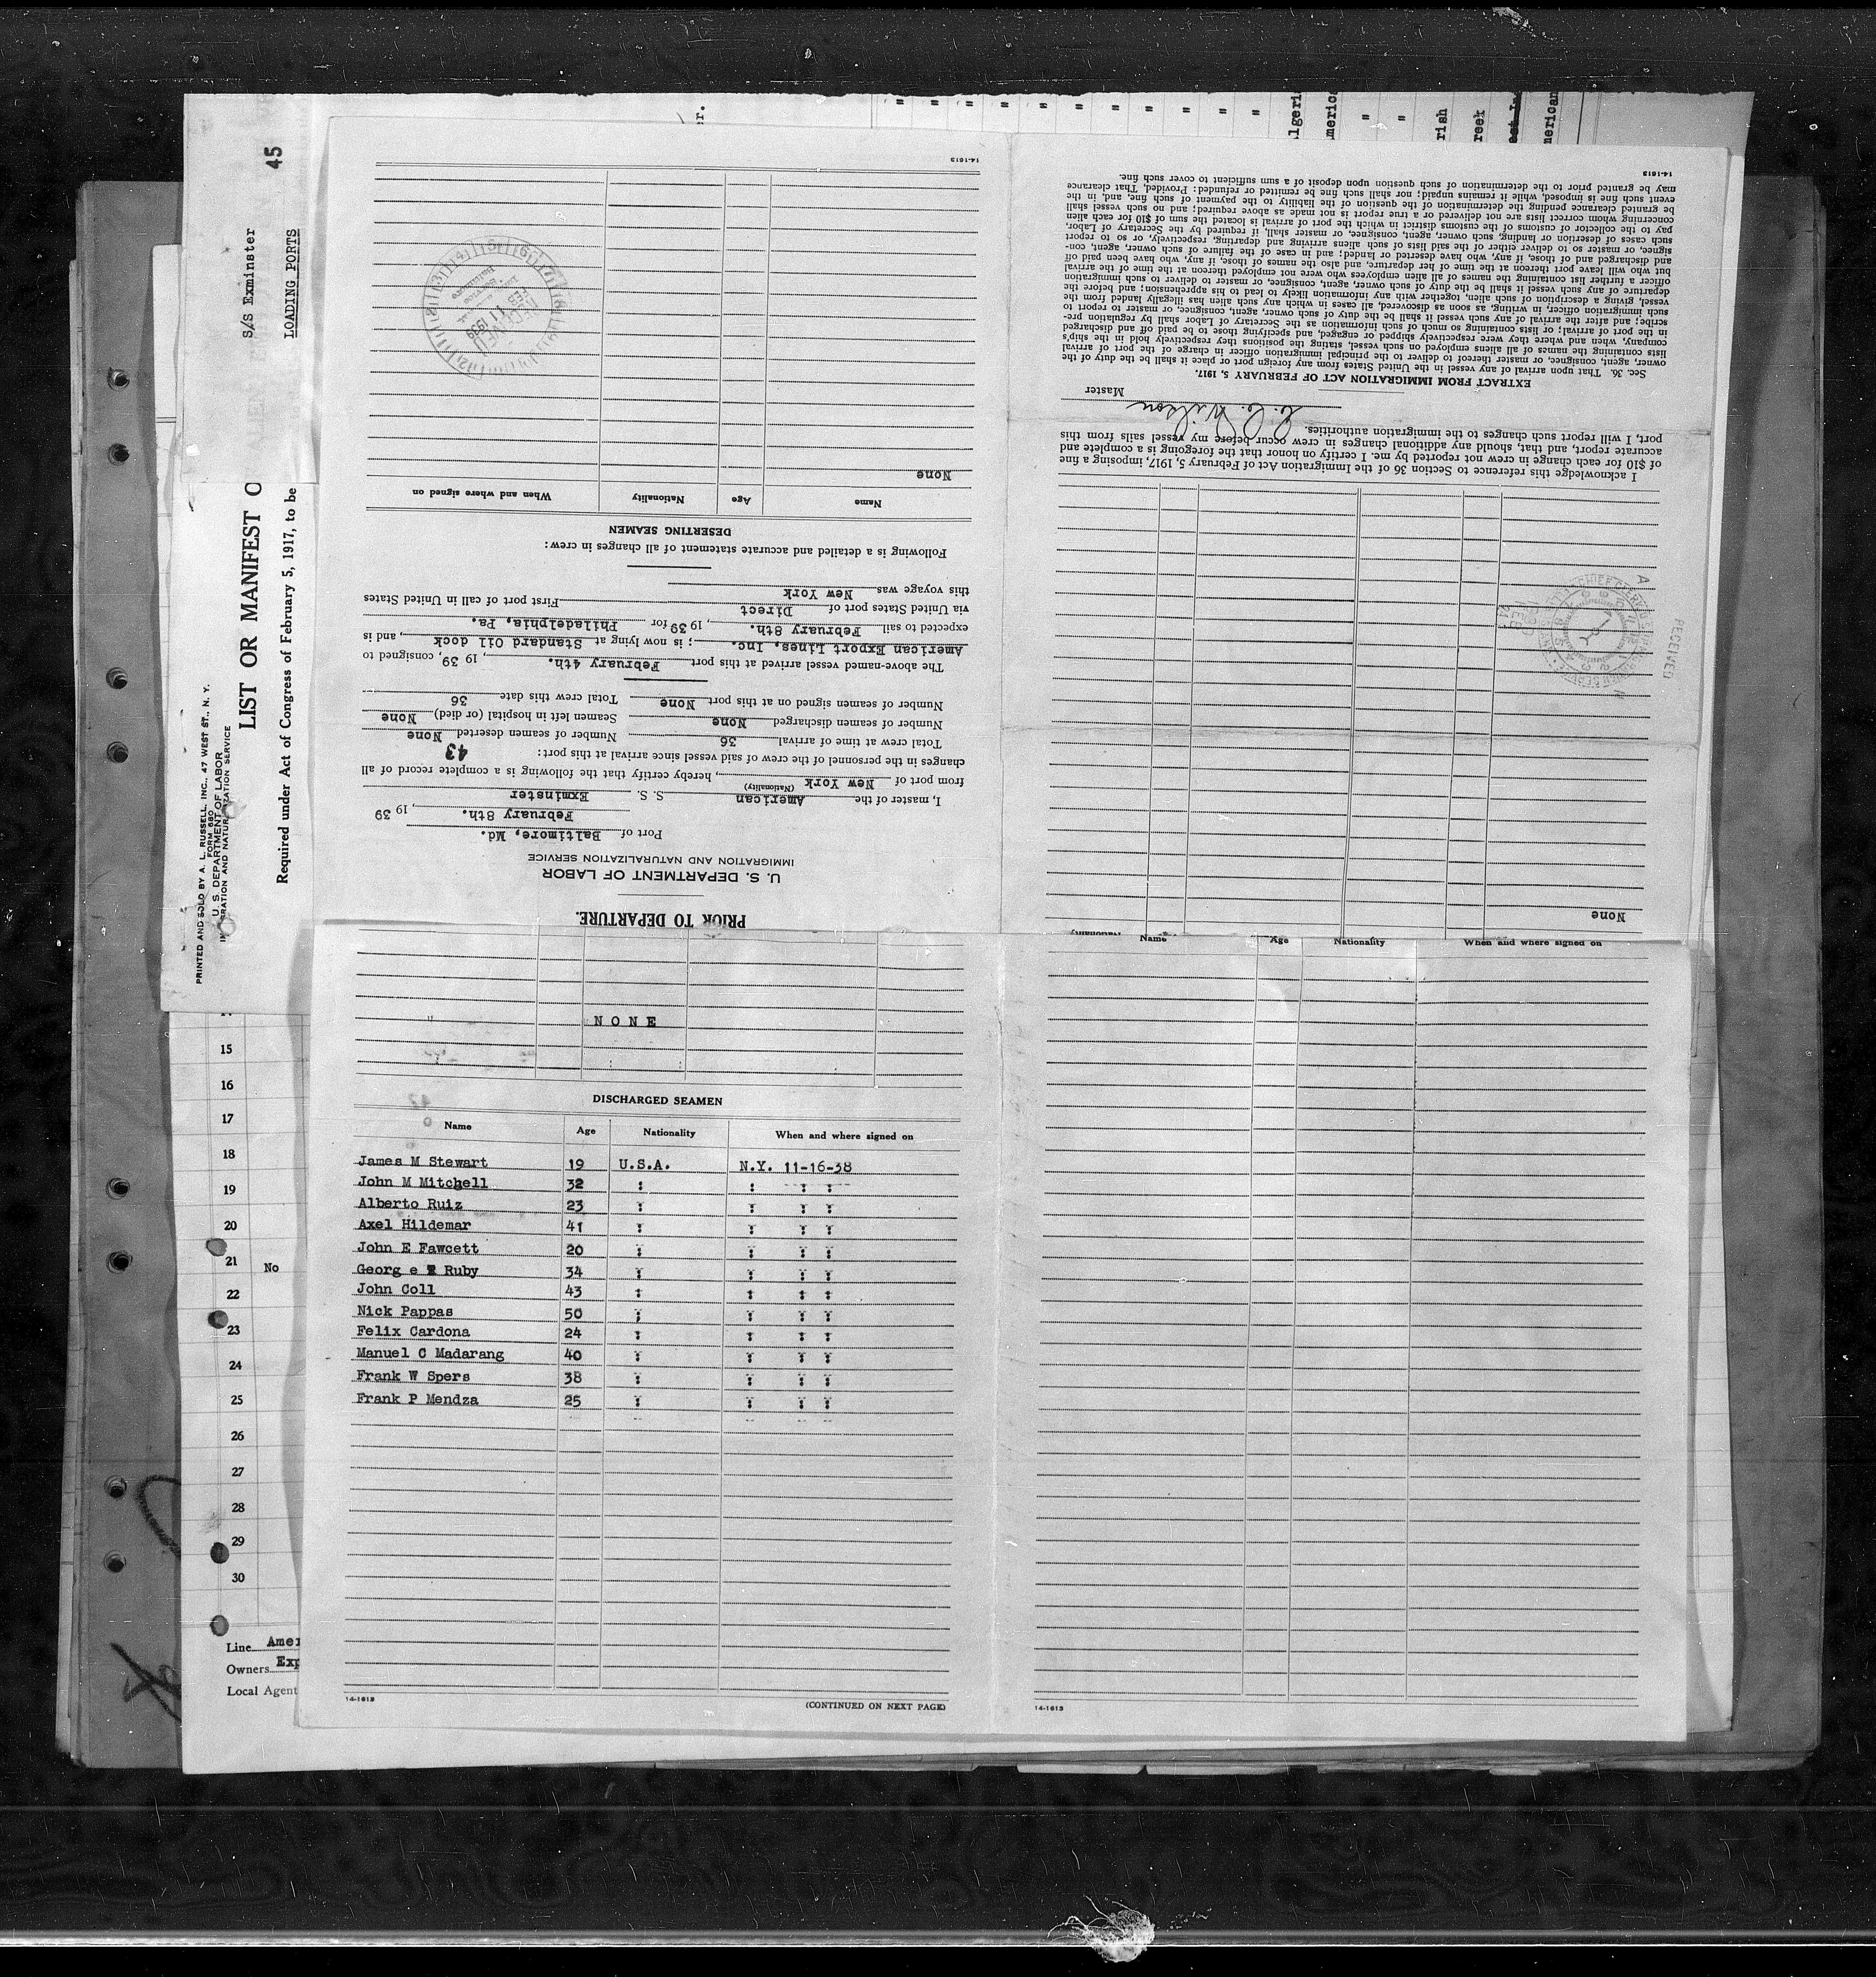 45
S/s Exminster
LOADING PORTS
PRINTED AND SOLD BY A. L. RUSSELL, INC., 47 WEST ST., N. Y.
FORM 680
U. S. DEPARTMENT OF LABOR
IMMIGRATION AND NATURALIZATION SERVICE
LIST OR MANIFEST O
Required under Act of Congress of February 5, 1917, to be
r.
" " " " " " " " " " "
lgeri
merica
"
"
rish
reek
merican
PRIOR TO DEPARTURE.
U. S. DEPARTMENT OF LABOR
IMMIGRATION AND NATURALIZATION SERVICE
Port of Baltimore, Md.
February 8th., 19 39
I, master of the American S. S. Exminster
(Nationality)
from port of New York, hereby certify that the following is a complete record of all
changes in the personnel of the crew of said vessel since arrival at this port:
43
Total crew at time of arrival 36 Number of seamen deserted None
Number of seamen discharged None Seamen left in hospital (or died) None
Number of seamen signed on at this port None Total crew this date 36
The above-named vessel arrived at this port February 4th., 19 39, consigned to
American Export Lines, Inc.; is now lying at Standard Oil dock, and is
expected to sail February 8th., 19 39 for Philadelphia, Pa.
via United States port of Direct First port of call in United States
this voyage was New York
Following is a detailed and accurate statement of all changes in crew:
DESERTING SEAMEN
Name Age Nationality When and where signed on
None
14-1613
RECEIVED
FEB 11 1939
None
I acknowledge this reference to Section 36 of the Immigration Act of February 5, 1917, imposing a fine
of $10 for each change in crew not reported by me. I certify on honor that the foregoing is a complete and
accurate report, and that, should any additional changes in crew occur before my vessel sails from this
port, I will report such changes to the immigration authorities.
C. C. Wilson
Master
EXTRACT FROM IMMIGRATION ACT OF FEBRUARY 5, 1917.
Sec. 36. That upon arrival of any vessel in the United States from any foreign port or place it shall be the duty of the
owner, agent, consignee, or master thereof to deliver to the principal immigration officer in charge of the port of arrival
lists containing the names of all aliens employed on such vessel, stating the positions they respectively hold in the ship's
company, when and where they were respectively shipped or engaged, and specifying those to be paid off and discharged
in the port of arrival; or lists containing so much of such information as the Secretary of Labor shall by regulation pre-
scribe; and after the arrival of any such vessel it shall be the duty of such owner, agent, consignee, or master to report to
such immigration officer, in writing, as soon as discovered, all cases in which any such alien has illegally landed from the
vessel, giving a description of such alien, together with any information likely to lead to his apprehension; and before the
departure of any such vessel it shall be the duty of such owner, agent, consignee, or master to deliver to such immigration
officer a further list containing the names of all alien employees who were not employed thereon at the time of the arrival
but who will leave port thereon at the time of her departure, and also the names of those, if any, who have been paid off
and discharged and of those, if any, who have deserted or landed; and in case of the failure of such owner, agent, con-
signee, or master so to deliver either of the said lists of such aliens arriving and departing, respectively, or so to report
such cases of desertion or landing, such owner, agent, consignee, or master shall, if required by the Secretary of Labor,
pay to the collector of customs of the customs district in which the port of arrival is located the sum of $10 for each alien
concerning whom correct lists are not delivered or a true report is not made as above required; and no such vessel shall
be granted clearance pending the determination of the question of the liability to the payment of such fine, and, in the
event such fine is imposed, while it remains unpaid; nor shall such fine be remitted or refunded: Provided, That clearance
may be granted prior to the determination of such question upon deposit of a sum sufficient to cover such fine.
14-1613
RECEIVED
NONE
DISCHARGED SEAMEN
Name Age Nationality When and where signed on
James M Stewart 19 U.S.A. N.Y. 11-16-38
John M Mitchell 32 : : : :
Alberto Ruiz 23 : : : :
Axel Hildemar 41 : : : :
John E Fawcett 20 : : : :
Georg e Ruby 34 : : : :
John Coll 43 : : : :
Nick Pappas 50 : : : :
Felix Cardona 24 : : : :
Manuel C Madarang 40 : : : :
Frank W Spers 38 : : : :
Frank P Mendza 25 : : : :
14-1613
(CONTINUED ON NEXT PAGE)
Name Age Nationality When and where signed on
14-1613
15
16
17
18
19
20
21 No
22
23
24
25
26
27
28
29
30
Line Amer
Owners Exp
Local Agent